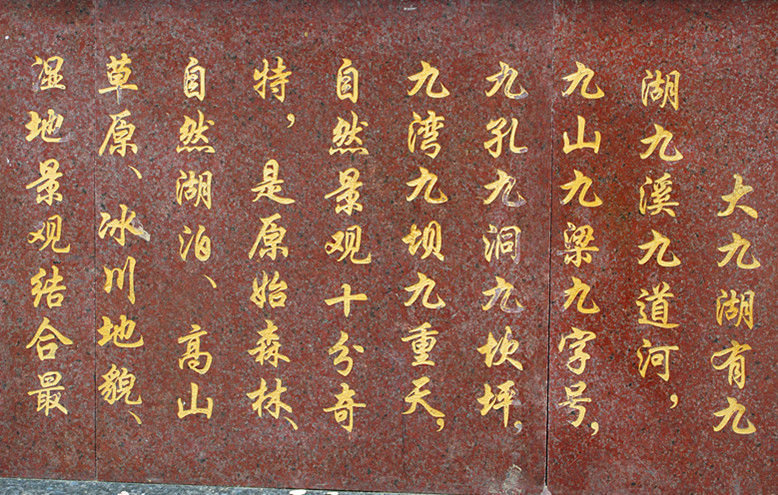 大九湖有九
湖九溪九道河，
九山九梁九字号，
九孔九洞九坎坪，
九湾九坝九重天，
自然景观十分奇
特，是原始森林、
自然湖泊、高山
草原、冰川地貌、
湿地景观结合最